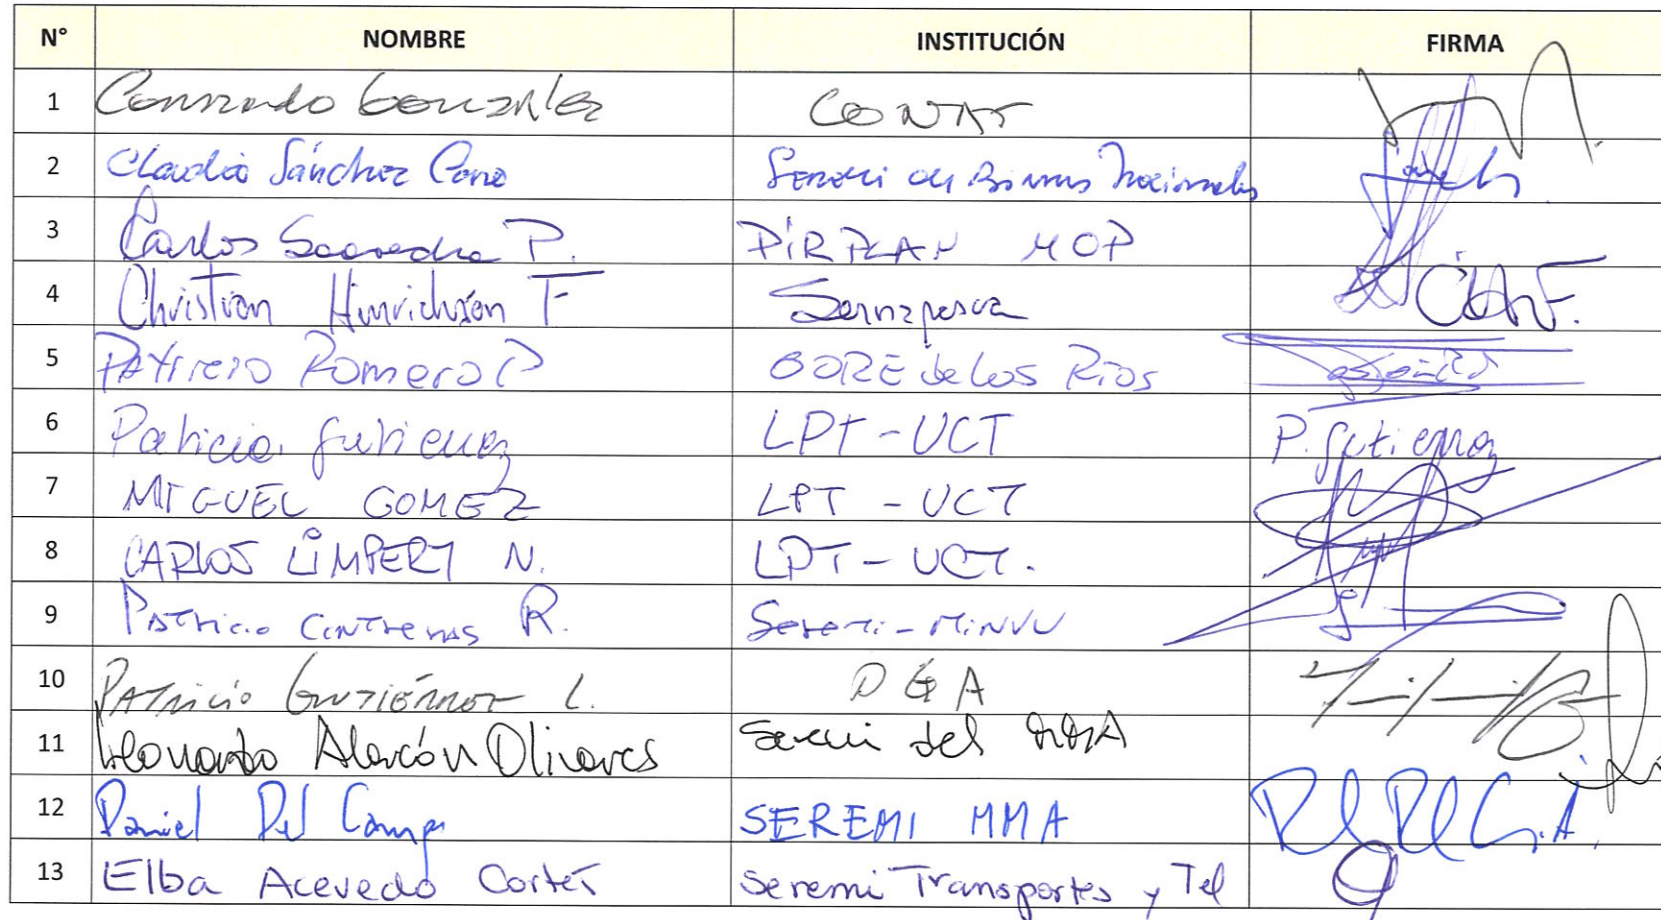 N° NOMBRE INSTITUCIÓN FIRMA
1 Conrado González CONAF
2 Claudio Sánchez Seremi de Bienes Nacionales
3 Carlos Saavedra P. DIRPLAN MOP
4 Christian Hinrichsen F Sernapesca
5 Patricio Romero P GORE de Los Ríos
6 Patricia Gutierrez LPT-UCT P. Gutierrez
7 MIGUEL GOMEZ LPT - UCT
8 CARLOS LIMPERT N. LPT-UCT.
9 Patricio Contreras R. Seremi-MINVU
10 Patricio Gutiérrez L. DGA
11 Leonardo Alarcón Olivares Seremi del MMA
12 Daniel Del Campo SEREMI MMA
13 Elba Acevedo Cortés Seremi Transportes y Tel